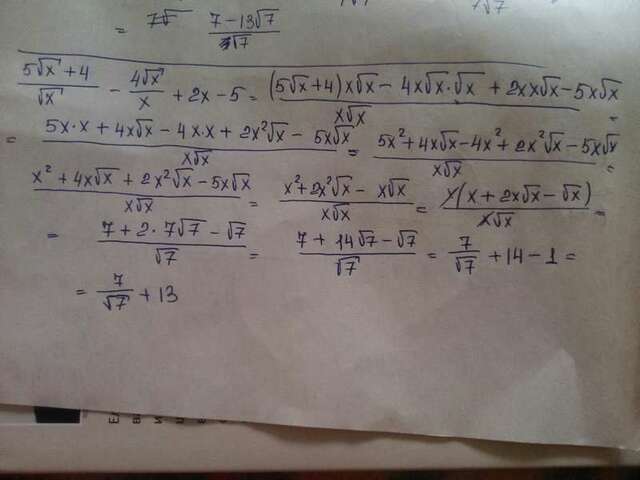 = 7√ (7-13√7)/(3√7)
(5√x+4)/√x - 4√x/x + 2x - 5 = ((5√x+4)x√x - 4x√x·√x + 2xx√x - 5x√x)/(x√x) =
= (5x·x + 4x√x - 4x·x + 2x²√x - 5x√x)/(x√x) = (5x² + 4x√x - 4x² + 2x²√x - 5x√x)/(x√x) =
(x² + 4x√x + 2x²√x - 5x√x)/(x√x) = (x² + 2x²√x - x√x)/(x√x) = x(x + 2x√x - √x)/(x√x) =
= (7 + 2·7√7 - √7)/√7 = (7 + 14√7 - √7)/√7 = 7/√7 + 14 - 1 =
= 7/√7 + 13